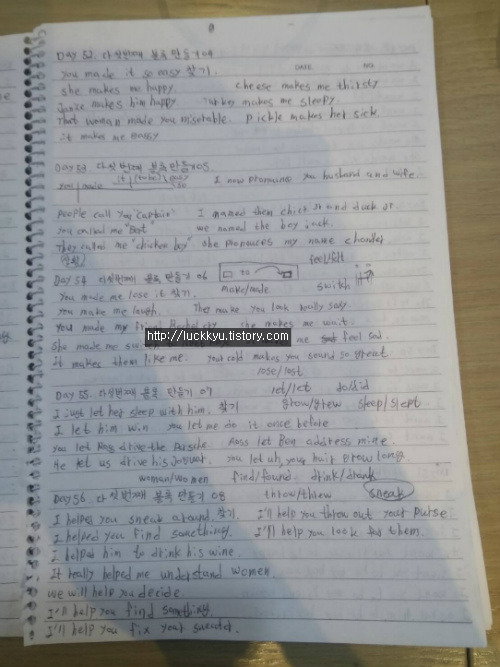 Day 52. 다섯번째 블록 만들기 04
DATE NO
you made it so easy 찾기.
she makes me happy. cheese makes me thirsty
Janice makes him happy. turkey makes me sleepy.
That woman made you miserable. pickle makes her sick
it makes me
Day 53 다섯번째 블록 만들기 05.
you made it (to be) easy
I now pronounce you husband and wife.
people call you "captain" I named them chick jr and duck jr.
called me we named the boy jack.
They called me "chicken boy" she pronounces my name chandler
feel/felt
Day 54 다섯번째 블록 만들기 06 to
You made me lose it 찾기. make/made switch
you make me laugh. make you look really sexy.
You made my friend cry makes me
http://luckkyu.tistory.com
She made me me feel sad.
it makes them like me. your cold makes you sound so great
lose/lost
Day 55. 다섯번째 블록 만들기 07 let/let do/did
I just let her sleep with him. 찾기 grow/grew sleep/slept
I let him win you let me do it once before
You let Ross drive the Porsche. Ross let Ron address mine.
He let us drive his Jaguar. You let your hair grow long
woman/women find/found drink/drank
Day 56 다섯번째 블록 만들기 08 throw/threw sneak
I helped you sneak around. 찾기 I'll help you throw out your purse
I helped you find something. I'll help you look for them.
I helped him to drink his wine.
It really helped me understand women.
we will help you decide.
I'll help you find something.
I'll help you fix your sweater.